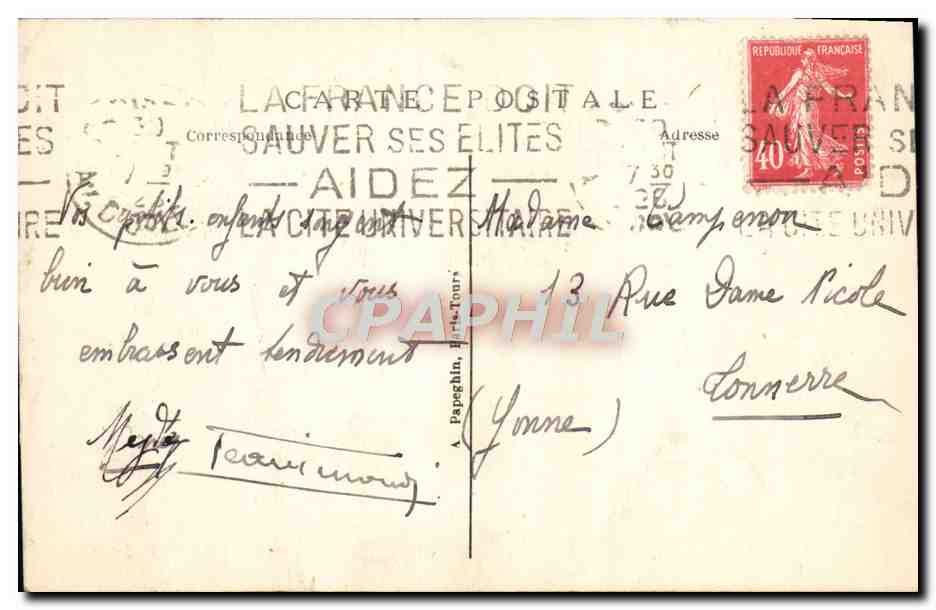 CARTE POSTALE
Correspondance
Adresse
REPUBLIQUE FRANÇAISE
40
POSTES
OIT
ES
IRE
LA FRANCE DOIT
SAUVER SES ELITES
— AIDEZ —
LA CITE UNIVERSITAIRE
7 30
LA FRAN
SAUVER SE
— AID
LA CITE UNIV
Vos petits enfants songent
bien à vous et vous
embrassent tendrement
Madame Campenon
13 Rue Dame Nicole
Tonnerre
(Yonne)
A Papeghin, Paris-Tours
CPAPHIL